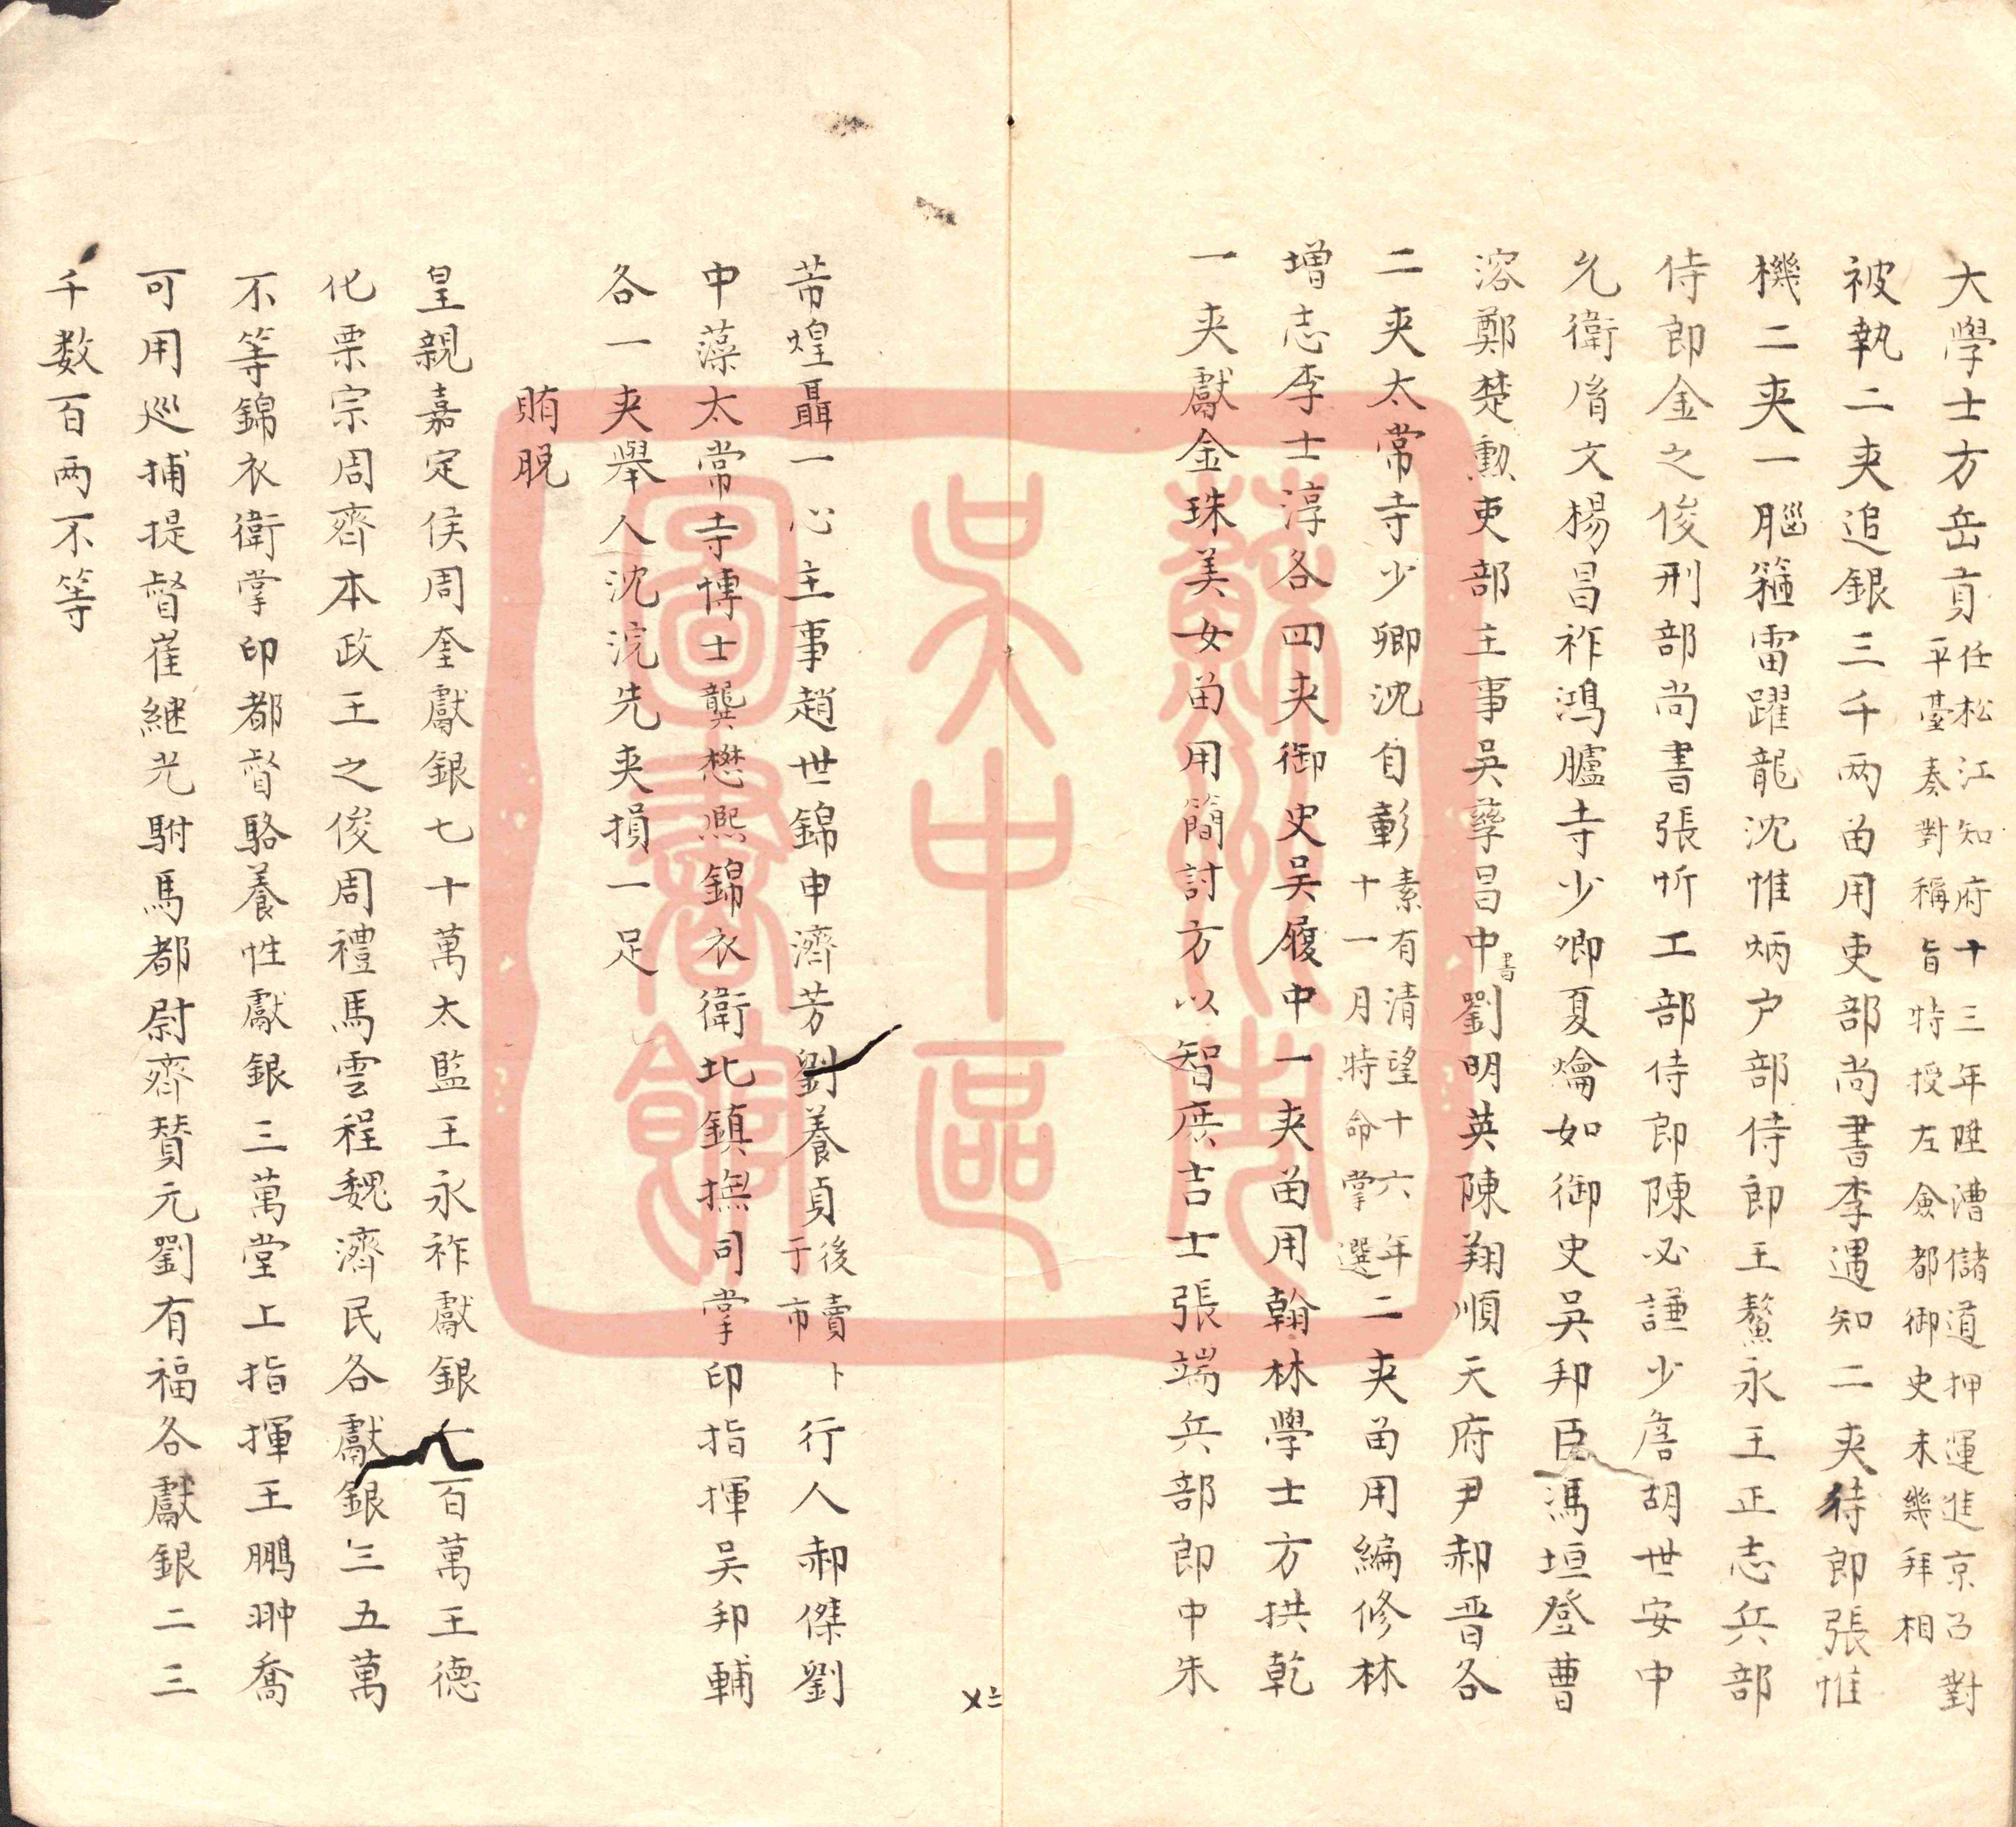 大學士方岳貢任松江知府十三年陞漕儲道押運進京召對平臺奏對稱旨特授左僉都御史未幾拜相
被執二夾追銀三千两畄用吏部尚書李遇知二夾侍郎張惟
機二夾一腦箍雷躍龍沈惟炳户部侍郎王鰲永王正志兵部
侍郎金之俊刑部尚書張忻工部侍郎陳必謙少詹胡世安中
允衛胤文楊昌祚鴻臚寺少卿夏爚如御史吳邦臣馮垣登曹
溶鄭楚勲吏部主事吳孳昌中書劉明英陳翔順天府尹郝晋各
二夾太常寺少卿沈自彰素有清望十六年十一月特命掌選二夾畄用編修林
增志李士淳各四夾御史吴履中一夾畄用翰林學士方拱乾
一夾獻金珠美女畄用簡討方以智庶吉士張端兵部郎中朱
芾煌聶一心主事趙世錦申濟芳劉養貞後賣卜于市行人郝傑劉
中藻太常寺博士龔懋熙錦衣衛北鎮撫司掌印指揮吴邦輔
各一夾舉人沈浣先夾損一足
賄脫
皇親嘉定侯周奎獻銀七十萬太監王永祚獻銀百萬王德
化栗宗周齊本政王之俊周禮馬雲程魏濟民各獻銀三五萬
不等錦衣衛掌印都督駱養性獻銀三萬堂上指揮王鵬翀喬
可用巡捕提督崔継光駙馬都尉齊賛元劉有福各獻銀二三
千数百两不等
蘇州市
吴中區
圖書館